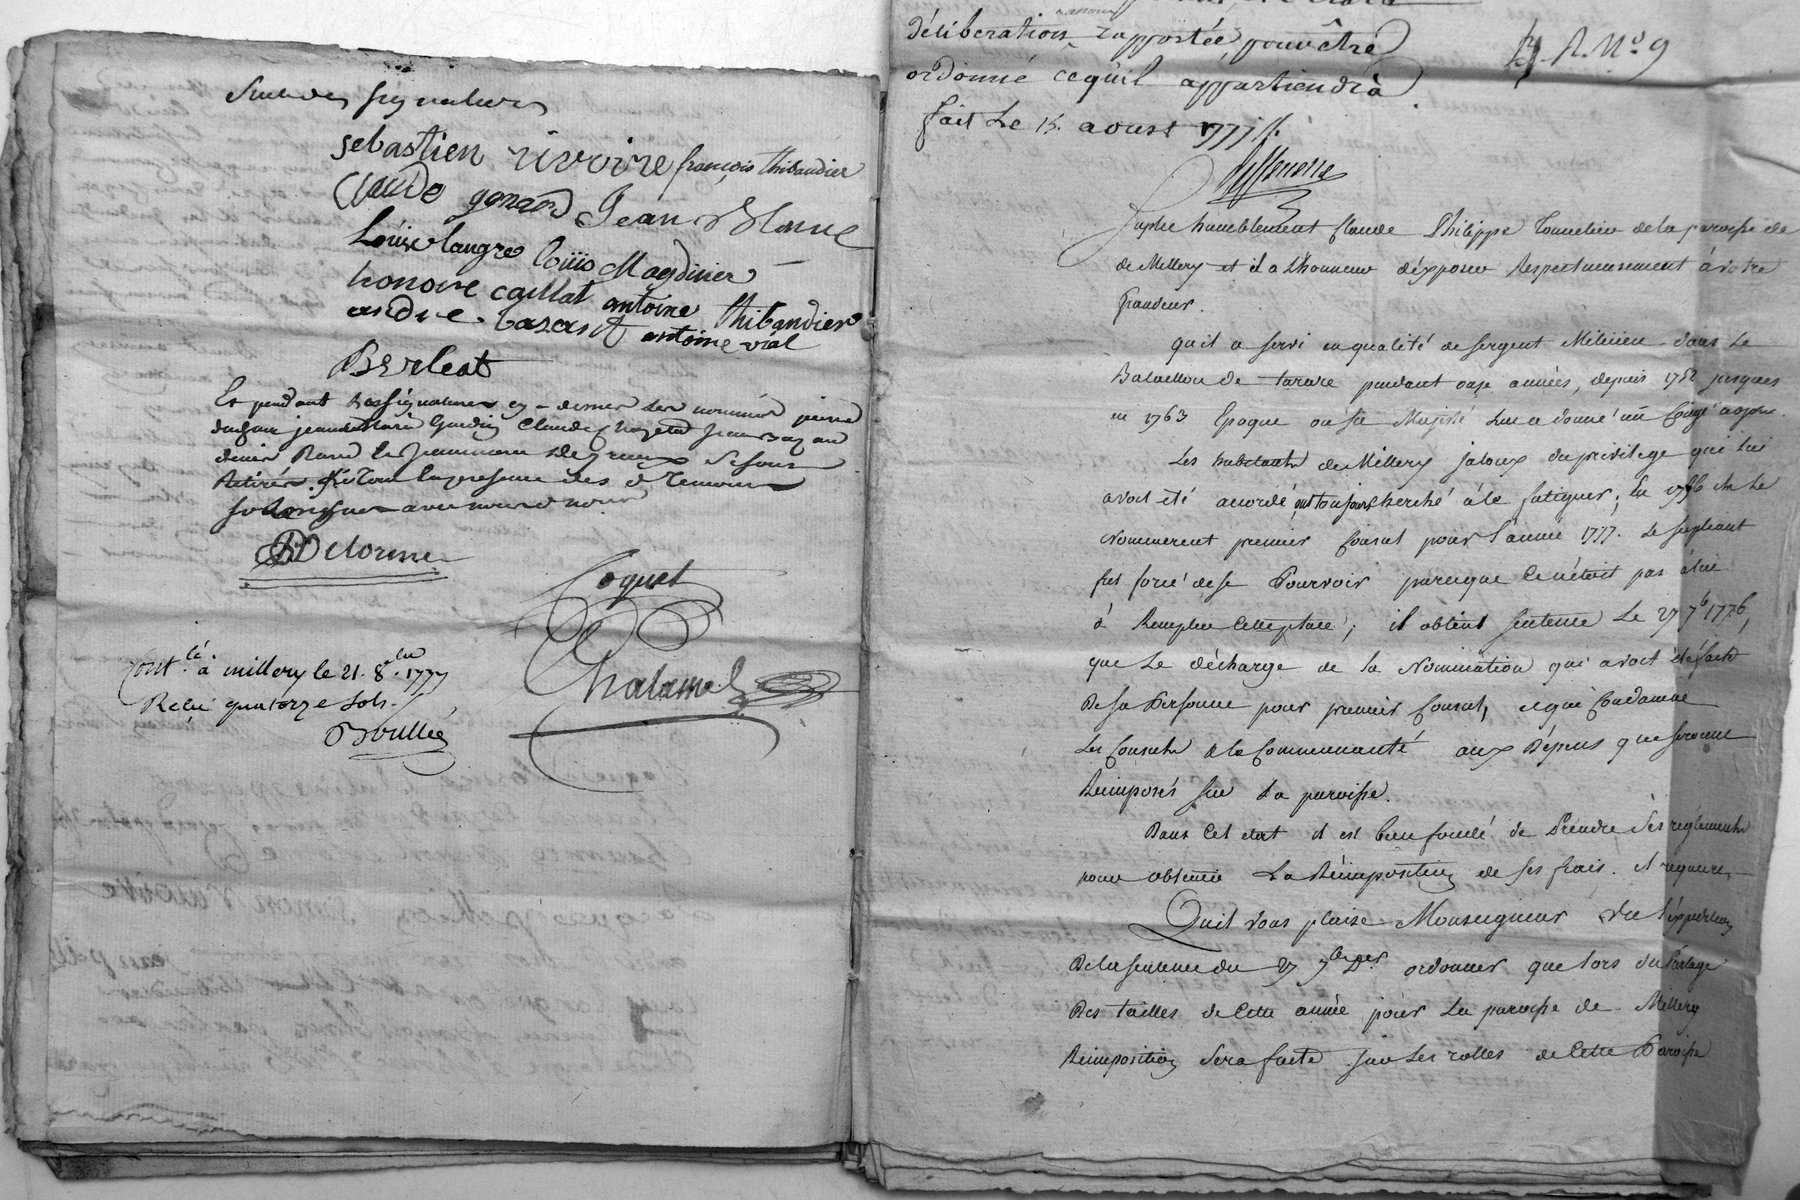 Suite des signatures
sebastien rivoire françois thibaudier
Claude gonard Jean Blanc
Louis langre loüis Magdinier
honoire caillat antoine thibaudier
andre antoine vial
Berleat
Et pendant les signatures cy-dessus les nommés pierre
jean Claude jean
se sont
Retirés. la presence des d temoins
soussignes avec nous d
Delorme
Coquet
Chalamel
Cont.lé à millery le 21. 8.bre 1777
Reçu quatorze sols.
Boullée
déliberation rapportée pour être
ordonné ce qu'il appartiendra
fait Le 15. aoust 1777 /.
B. A. N.o 9
Suplie humblement Claude Philippe Tonnelier de la paroisse de
de Millery et il a L'honneur d'éxposer Respectueusement à votre
Grandeur.
qu'il a servi en qualité de sergent Milicien dans Le
Bataillon de tarare pendant onze années, depuis 1752 jusques
en 1763 Epoque où sa Majesté Lui a donné un Congé absolu.
Les habitants de Millery jaloux du privilege qui lui
avoit été accordé ont toujours cherché à le fatiguer; En 1776 ils Le
Nommerent premier Consul pour l'année 1777. Le supliant
fut forcé de se Pourvoir parceque Ce n'étoit pas à lui
à Remplir Cette place; il obtint sentence Le 27 7b 1776,
que Le décharge de la Nomination qui avoit été faite
De sa Personne pour premier Consul, et qui Condamne
Les Consuls & la Communauté aux Dépens que seront
Reimposés sur La paroisse.
Dans Cet etat il est bien fondé de Prendre Les réglements
pour obtenir La Réimposition de ses frais. et requiert
Qu'il vous plaise Monseigneur vu l'éxpedition
De la sentence du 27 7bre Der ordonner que lors du Partage
Des tailles de Cette année pour La paroisse de Millery
Reimposition sera faite sur Les rolles de Cette Paroisse